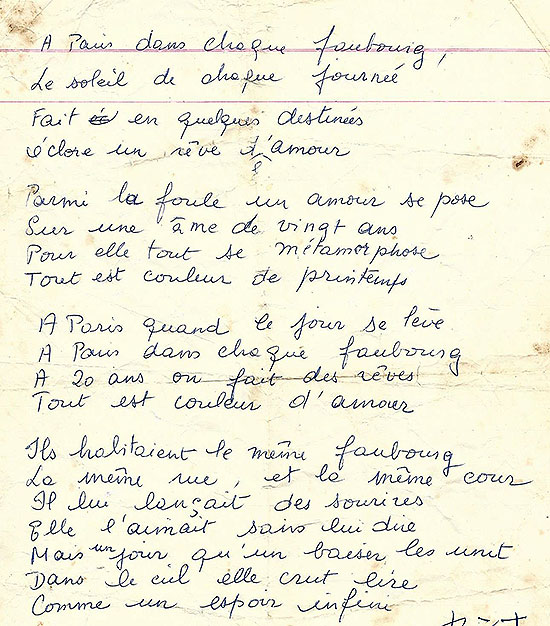 A Paris dans chaque faubourg,
Le soleil de chaque journée
Fait en quelques destinées
éclore un rêve d'amour
Parmi la foule un amour se pose
Sur une âme de vingt ans
Pour elle tout se métamorphose
Tout est couleur de printemps
A Paris quand le jour se lève
A Paris dans chaque faubourg
A 20 ans on fait des rêves
Tout est couleur d'amour
Ils habitaient le même faubourg
La même rue, et la même cour
Il lui lançait des sourires
Elle l'aimait sans lui dire
Mais un jour qu'un baiser les unit
Dans le ciel elle crut lire
Comme un espoir infini